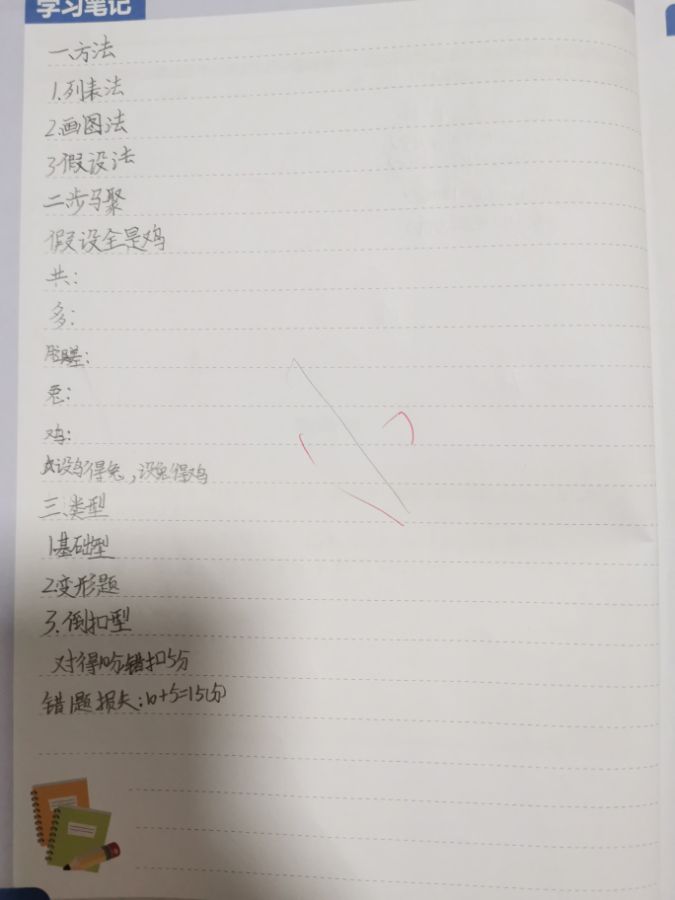 学习笔记
一、方法
1.列表法
2.画图法
3.假设法
二步骤
假设全是鸡
共：
多：
腿差：
兔：
鸡：
设鸡得兔，设兔得鸡
三、类型
1.基础型
2.变形题
3.倒扣型
对得10分错扣5分
错1题损失：10+5=15(分)